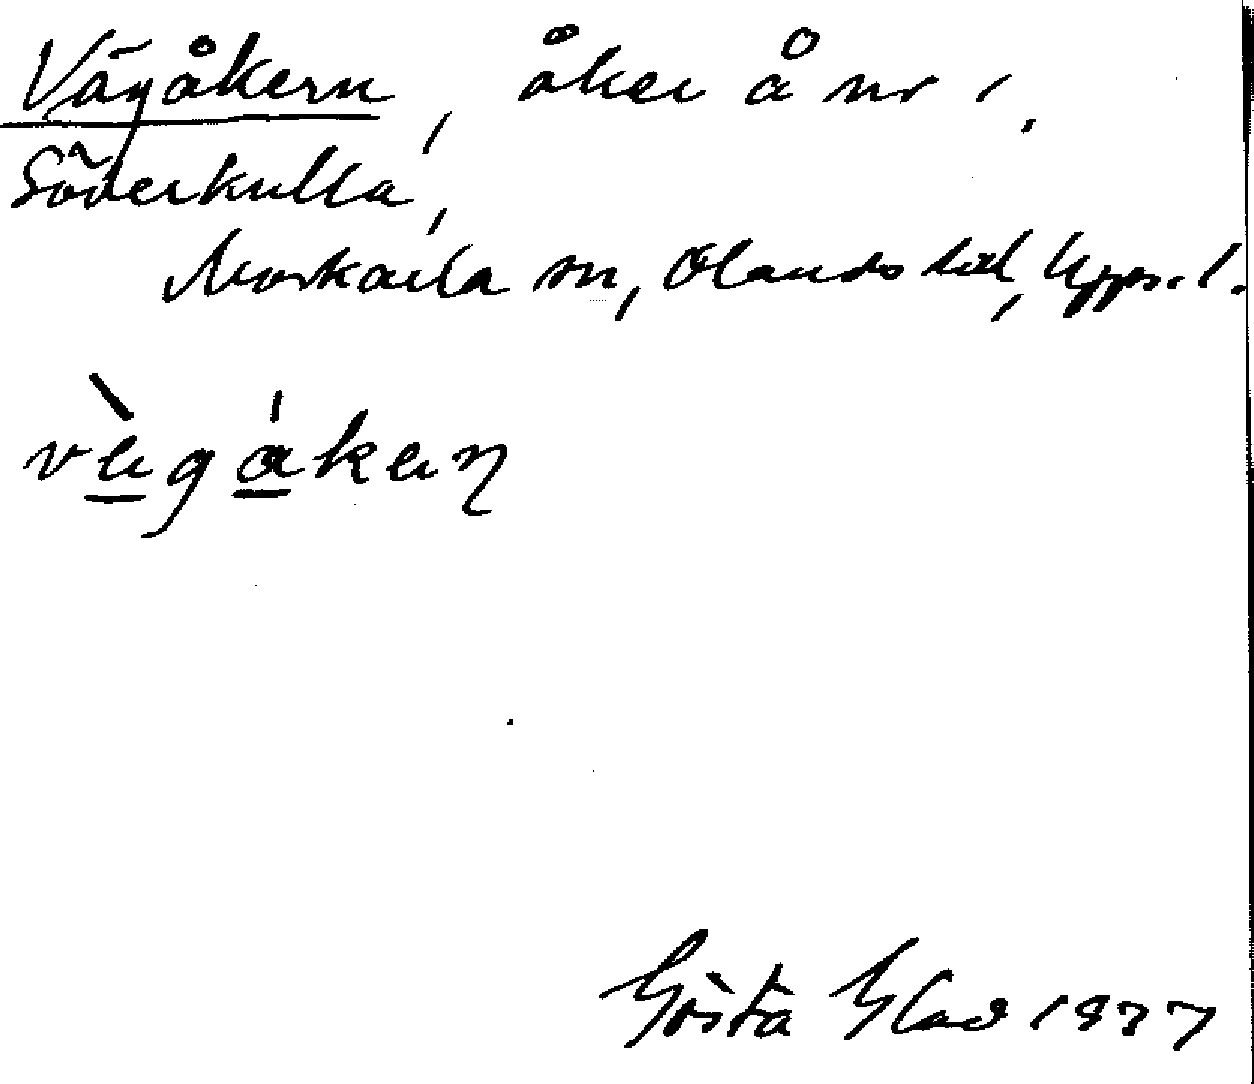 Vägåkern, åker å nr 1.
Söderkulla,
Morkarla sn, Olands hd, Upps. l.
vägåkaŋ
Gösta Glad 1937